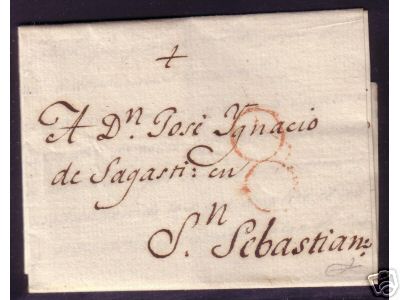 +
A Dn. José Ygnacio
de Sagasti: en
Sn. Sebastian: